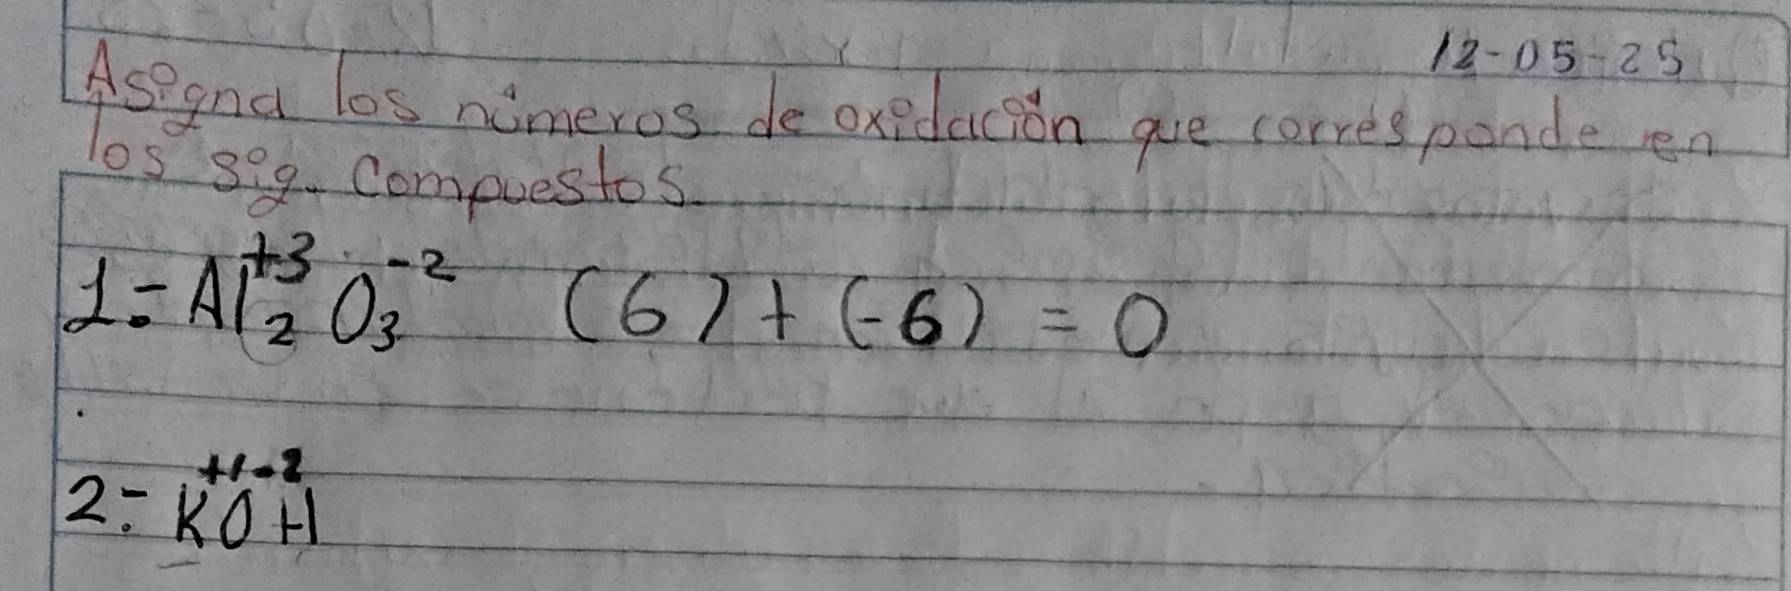 12-05-25
Asigna los números de oxidación que corresponde en
los sig. Compuestos.
1.- Al₂⁺³ O₃⁻² (6) + (-6) = 0
+1 -2
2.- KOH